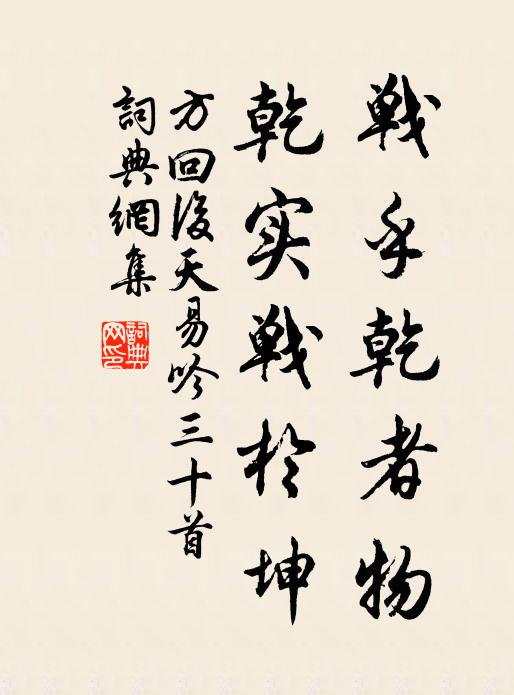 戦乎乾者物
乾实戦於坤
方回後天易吟三十首
詞典網集
詞典網印